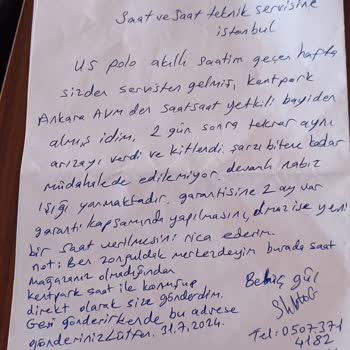 Saat ve Saat teknik servisine
istanbul
US polo akıllı saatim geçen hafta
sizden servisten gelmiş, kentpark
Ankara AVM den saatsaat yetkili bayiden
almış idim, 2 gün sonra tekrar aynı
arızayı verdi ve kitlendi. şarzı bitene kadar
müdahalede edilemiyor. devamlı nabız
ışığı yanmaktadır. garantisine 2 ay var
garanti kapsamında yapılmasını, olmaz ise yeni
bir saat verilmesini rica ederim.
not: Ben zonguldak merkezdeyim burada saat
mağazanız olmadığından
kentpark saat ile konuşup
direkt olarak size gönderdim.
Geri gönderirkende bu adrese
gönderiniz Lütfen. 31.7.2024.
Behiç gül
Tel: 0507.371
4182